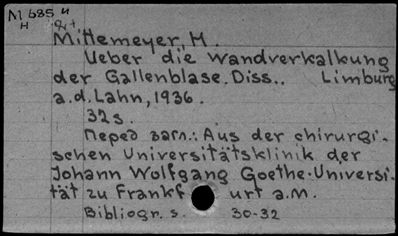 M 685 и
н
Mittemeyer, M.
Ueber die Wandverkalkung
der Gallenblase. Diss.. Limburg
a.d. Lahn, 1936.
32s.
Перед загл.: Aus der chirurgi-
schen Universitätsklinik der
Johann Wolfgang Goethe-Universi-
tät zu Frankfurt a.M.
Bibliogr. s. 30-32